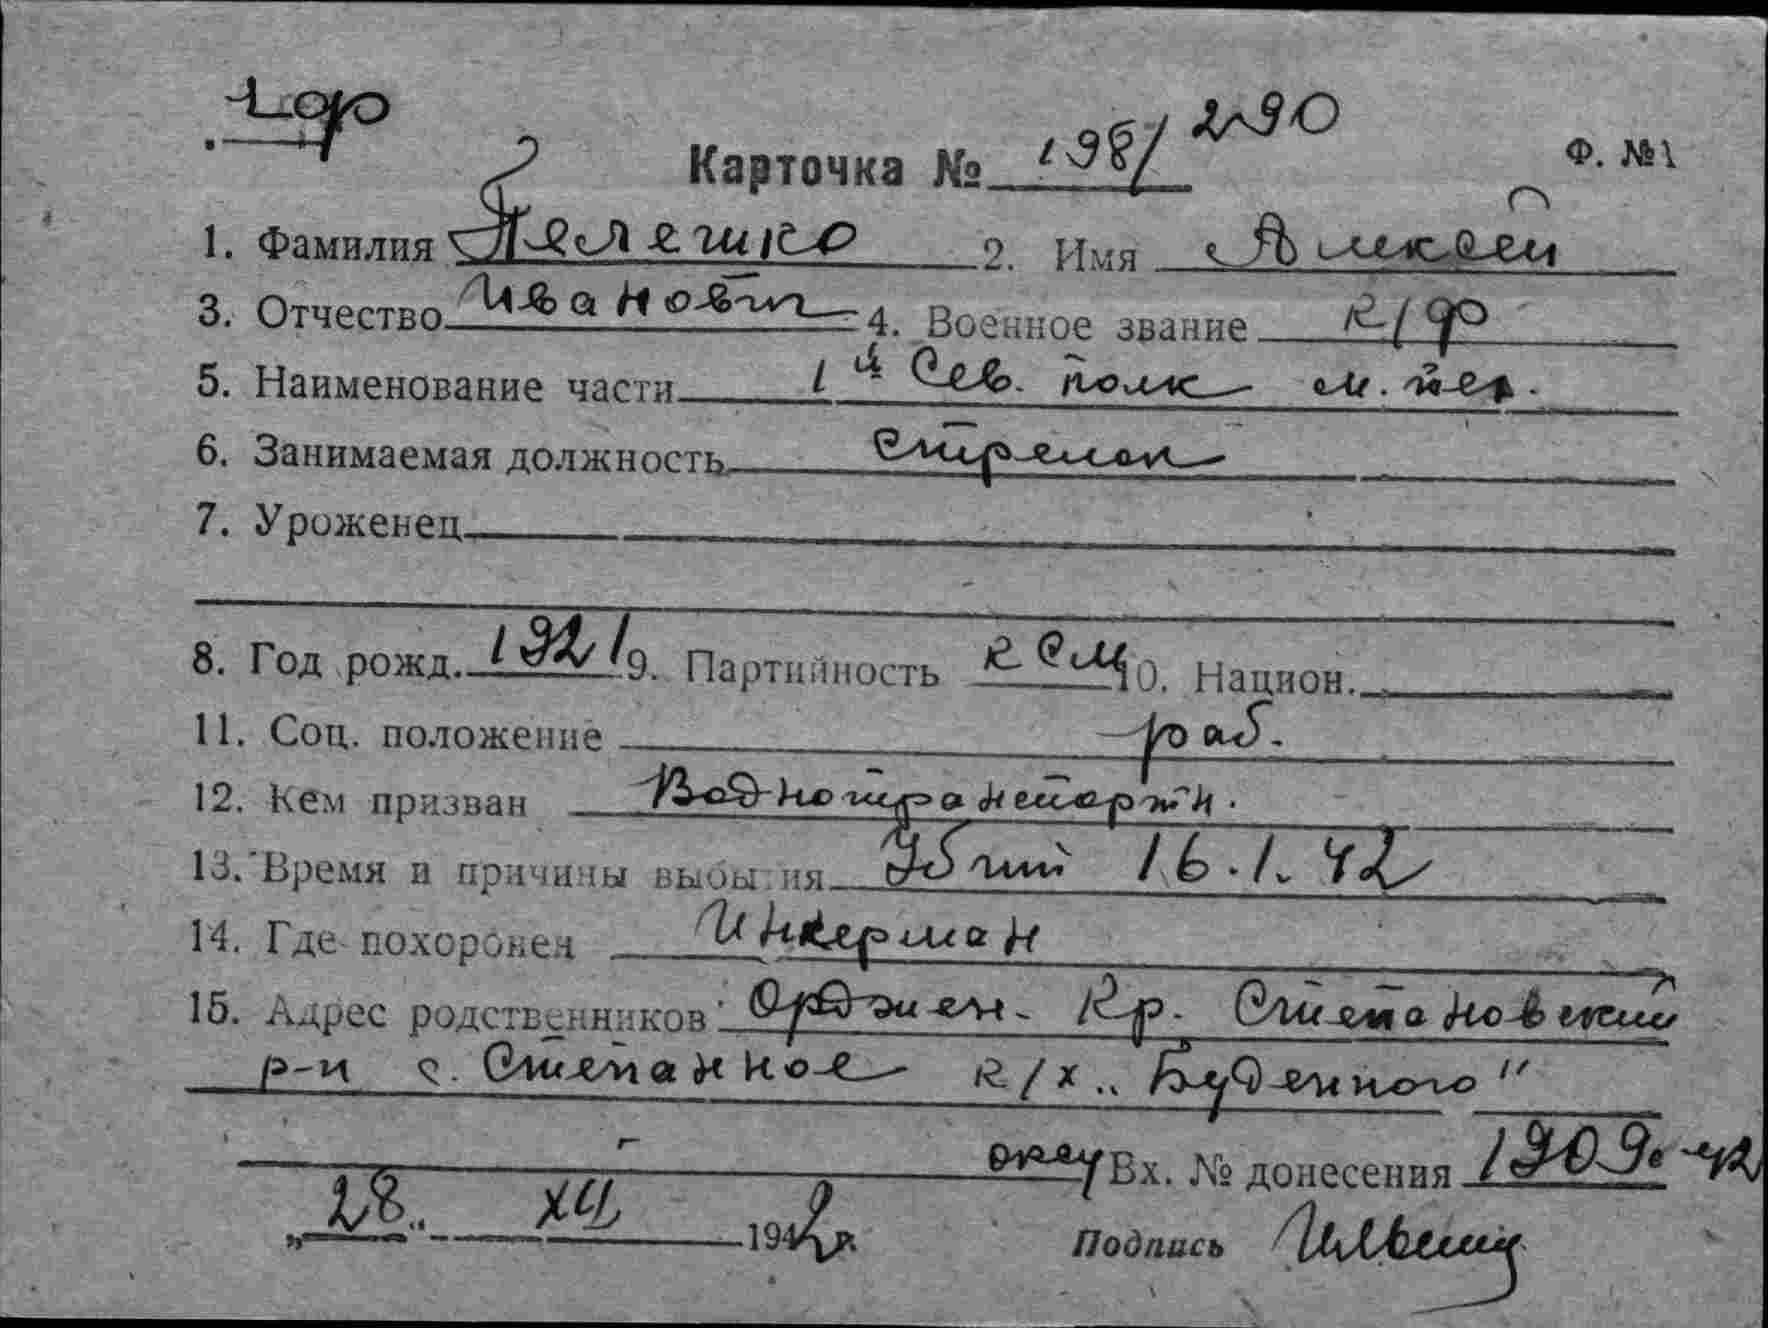 Карточка № 198/290
Ф. №1
1. Фамилия Пелешко 2. Имя Алексей
3. Отчество Иванович 4. Военное звание к/ф
5. Наименование части 1й Сев. полк м. пех.
6. Занимаемая должность стрелок
7. Уроженец
8. Год рожд. 1921 9. Партийность КСМ 10. Национ.
11. Соц. положение раб.
12. Кем призван Воднотранспортн.
13. Время и причины выбытия Убит 16.1.42
14. Где похоронен Инкерман
15. Адрес родственников Орджен. Кр. Степановский
р-н с. Степанное к/х „Буденного"
Вх. № донесения 1909с 42
„28" XII 1942 г.
Подпись